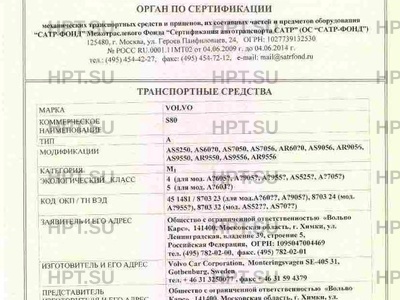 ОРГАН ПО СЕРТИФИКАЦИИ
механических транспортных средств и прицепов, их составных частей и предметов оборудования
"САТР-ФОНД" Межотраслевого Фонда "Сертификация автотранспорта САТР" (ОС "САТР-ФОНД")
125480, г. Москва, ул. Героев Панфиловцев, 24, ОГРН: 1027739132530
№ РОСС RU.0001.11МТ02 от 04.06.2009 до 04.06.2014 г.
тел.: (495) 454-42-27, факс: (495) 454-72-12, e-mail: mail@satrfond.ru
HPT.SU HPT.SU
ТРАНСПОРТНЫЕ СРЕДСТВА
МАРКА VOLVO
КОММЕРЧЕСКОЕ НАИМЕНОВАНИЕ S80
ТИП A
МОДИФИКАЦИИ AS5250, AS6070, AS7050, AS7056, AR6070, AS9056, AR9056,
AS9550, AR9550, AS9556, AR9556
КАТЕГОРИЯ M1
ЭКОЛОГИЧЕСКИЙ КЛАСС 4 (для мод. A?605?, A?905?, A?955?, AS525?, A?705?)
5 (для мод. A?603?)
КОД ОКП / ТН ВЭД 45 1481 / 8703 23 (для мод.A?60??, A?905?), 8703 24 (мод.
A?955?), 8703 32 (мод. AS52??, AS70??)
ЗАЯВИТЕЛЬ И ЕГО АДРЕС Общество с ограниченной ответственностью «Вольво
Карс», 141400, Московская область, г. Химки, ул.
Ленинградская, владение 39, строение 5,
Российская Федерация, ОГРН: 1095047004469
тел. (495) 782-02-00, факс (495) 782-02-01
ИЗГОТОВИТЕЛЬ И ЕГО АДРЕС Volvo Car Corporation, Monteringsvagen SE-405 31,
Gothenburg, Sweden
тел. + 46 31 3250077, факс + 46 31 59 4379
ПРЕДСТАВИТЕЛЬ Общество с ограниченной ответственностью «Вольво
ИЗГОТОВИТЕЛЯ И ЕГО Карс», 141400, Московская область, г. Химки, ул.